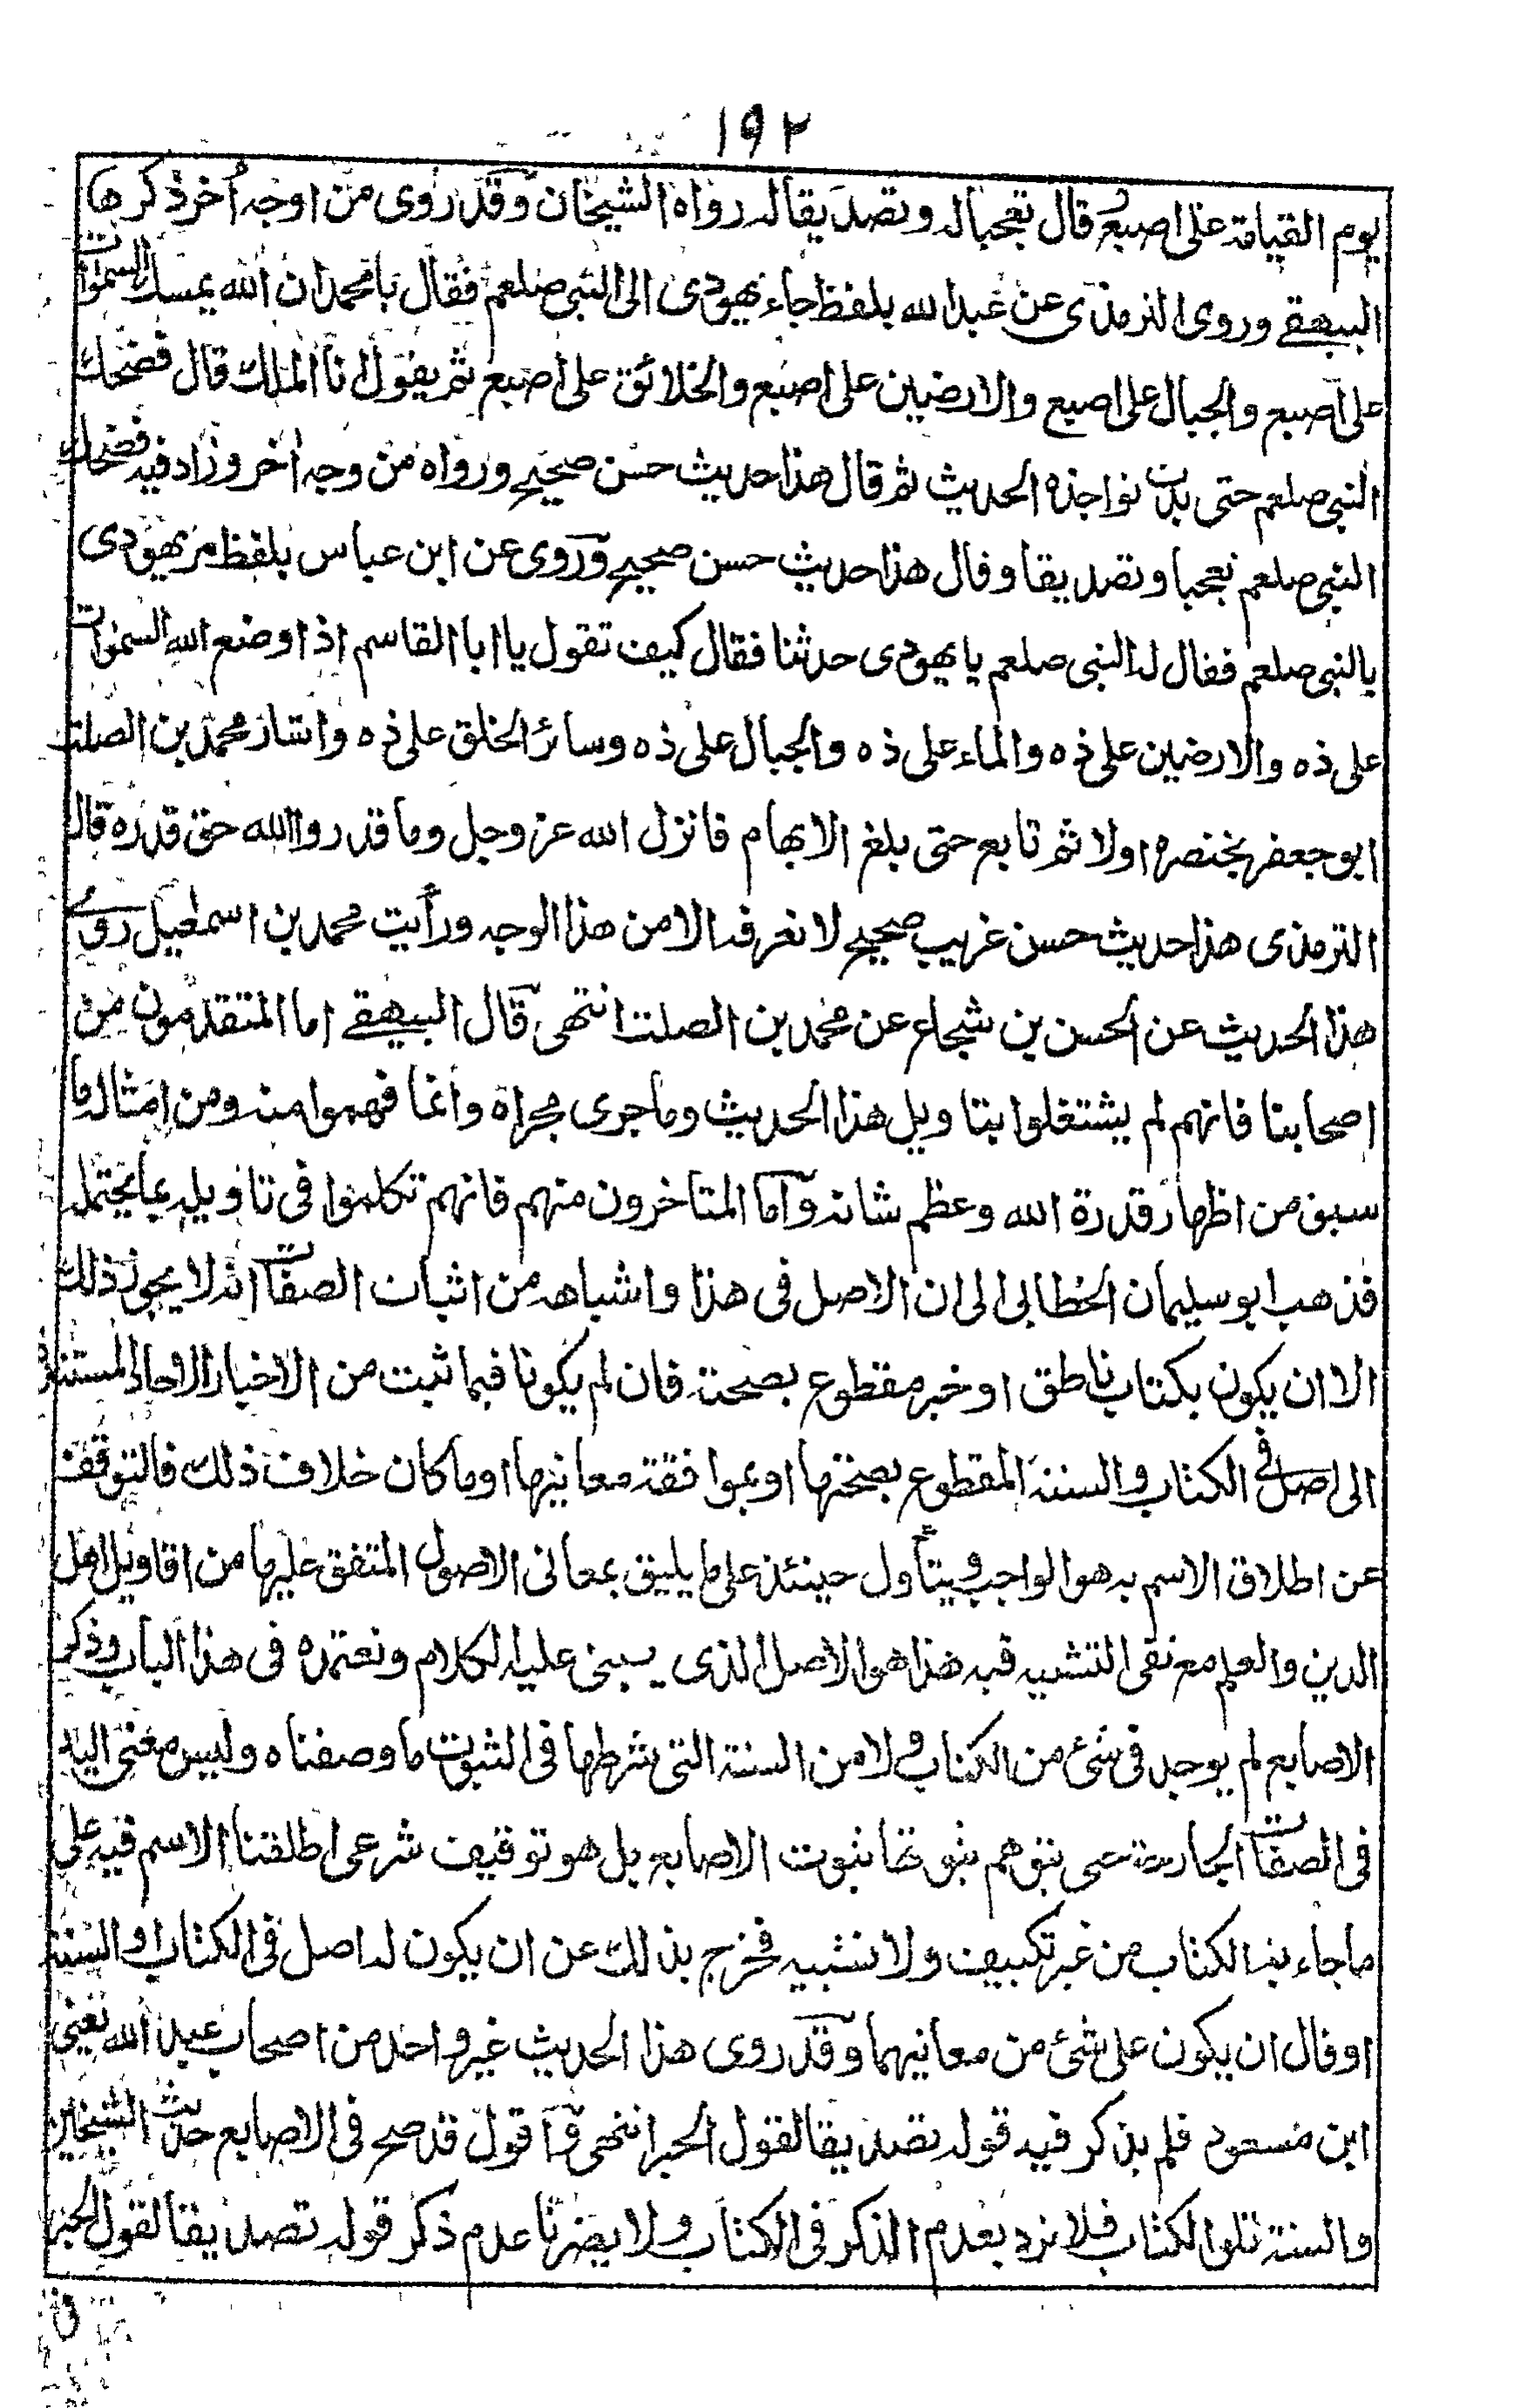 ١٩٢
يوم القيامة على اصبع قال تعجبا له وتصديقا له رواه الشيخان وقد روى من اوجه أخر ذكرها
البيهقے وروى الترمذى عن عبد الله بلفظ جاء يهودى الى النبى صلعم فقال يا محمد ان الله يمسك السموات
على اصبع والجبال على اصبع والارضين على اصبع والخلائق على اصبع ثم يقول انا الملك قال فضحك
النبى صلعم حتى بدت نواجذه الحديث ثم قال هذا حديث حسن صحيح ورواه من وجه اخر وزاد فيه فضحك
النبى صلعم تعجبا وتصديقا وقال هذا حديث حسن صحيح وروى عن ابن عباس بلفظ مر يهودى
بالنبى صلعم فقال له النبى صلعم يا يهودى حدثنا فقال كيف تقول يا ابا القاسم اذا وضع الله السموات
على ذه والارضين على ذه والماء على ذه والجبال على ذه وسائر الخلق على ذه واشار محمد بن الصلت
ابو جعفر بخنصره اولا ثم تابع حتى بلغ الابهام فانزل الله عز وجل وما قدروا الله حق قدره قال
الترمذى هذا حديث حسن غريب صحيح لا نعرفه الا من هذا الوجه ورأيت محمد بن اسمعيل روى
هذا الحديث عن الحسن بن شجاع عن محمد بن الصلت انتهى قال البيهقے اما المتقدمون من
اصحابنا فانهم لم يشتغلوا بتاويل هذا الحديث وما جرى مجراه وانما فهموا منه ومن امثاله ما
سبق من اظهار قدرة الله وعظم شانه واما المتاخرون منهم فانهم تكلموا فى تاويله بما يحتمله
فذهب ابو سليمان الخطابى الى ان الاصل فى هذا واشباهه من اثبات الصفات انه لا يجوز ذلك
الا ان يكون بكتاب ناطق او خبر مقطوع بصحته فان لم يكونا فبما ثبت من الاخبار الاحاد المستندة
الى اصل فى الكتاب والسنة المقطوع بصحتها او بموافقة معانيها وما كان خلاف ذلك فالتوقف
عن اطلاق الاسم به هو الواجب ويتأول حينئذ على ما يليق بمعانى الاصول المتفق عليها من اقاويل اهل
الدين والعلم مع نفى التشبيه فيه هذا هو الاصل الذى يبنى عليه الكلام ونعتمده فى هذا الباب وذكر
الاصابع لم يوجد فى شئ من الكتاب ولا من السنة التى شرطها فى الثبوت ما وصفناه وليس معنى اليد
فى الصفات الجارحة حتى يتوهم بثبوتها ثبوت الاصابع بل هو توقيف شرعى اطلقنا الاسم فيه على
ما جاء به الكتاب من غير تكييف ولا تشبيه فخرج بذلك عن ان يكون له اصل فى الكتاب او السنة
او قال ان يكون على شئ من معانيهما وقد روى هذا الحديث غير واحد من اصحاب عبد الله يعنى
ابن مسعود فلم يذكر فيه قوله تصديقا لقول الحبر انتهى واقول قد صح فى الاصابع حديث الشيخين
والسنة تلو الكتاب فلا نرد بعدم الذكر فى الكتاب ولا يضرنا عدم ذكر قوله تصديقا لقول الحبر